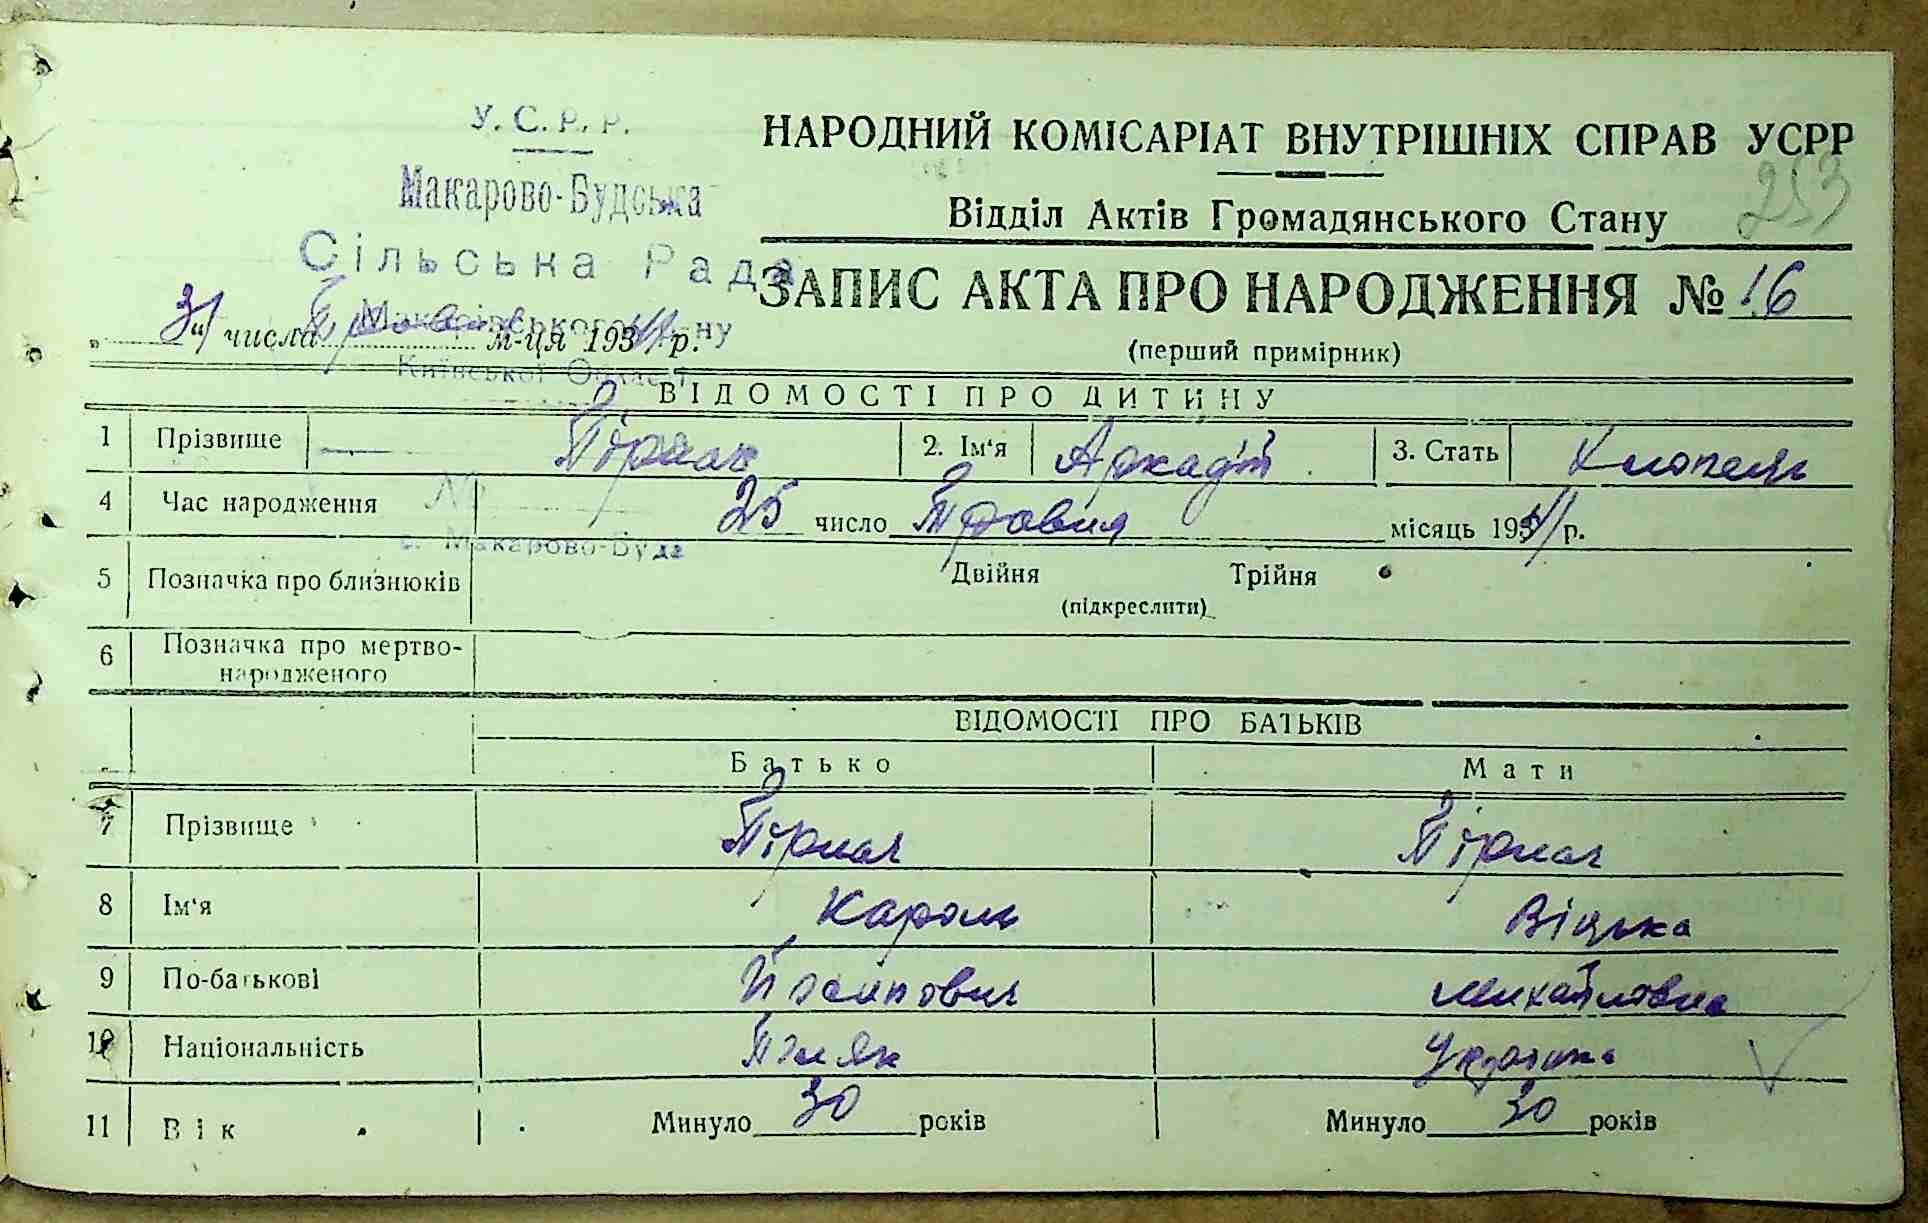 У. С. Р. Р.
Макарово-Будська
Сільська Рада
Макарівського р-ну
Київської Області
с. Макарово-Буда
НАРОДНИЙ КОМІСАРІАТ ВНУТРІШНІХ СПРАВ УСРР
253
Відділ Актів Громадянського Стану
ЗАПИС АКТА ПРО НАРОДЖЕННЯ № 16
(перший примірник)
„31“ числа м-ця 193 р.
ВІДОМОСТІ ПРО ДИТИНУ
1 Прізвище 2. Ім‘я Аркадій 3. Стать Хлопець
4 Час народження 25 число Травня місяць 193 р.
5 Позначка про близнюків Двійня Трійня
(підкреслити)
6 Позначка про мертво-
народженого
ВІДОМОСТІ ПРО БАТЬКІВ
Батько Мати
7 Прізвище
8 Ім‘я Кароль
9 По-батькові Йосипович Михайловна
10 Національність Поляк Українка
11 Вік Минуло 30 років Минуло 30 років